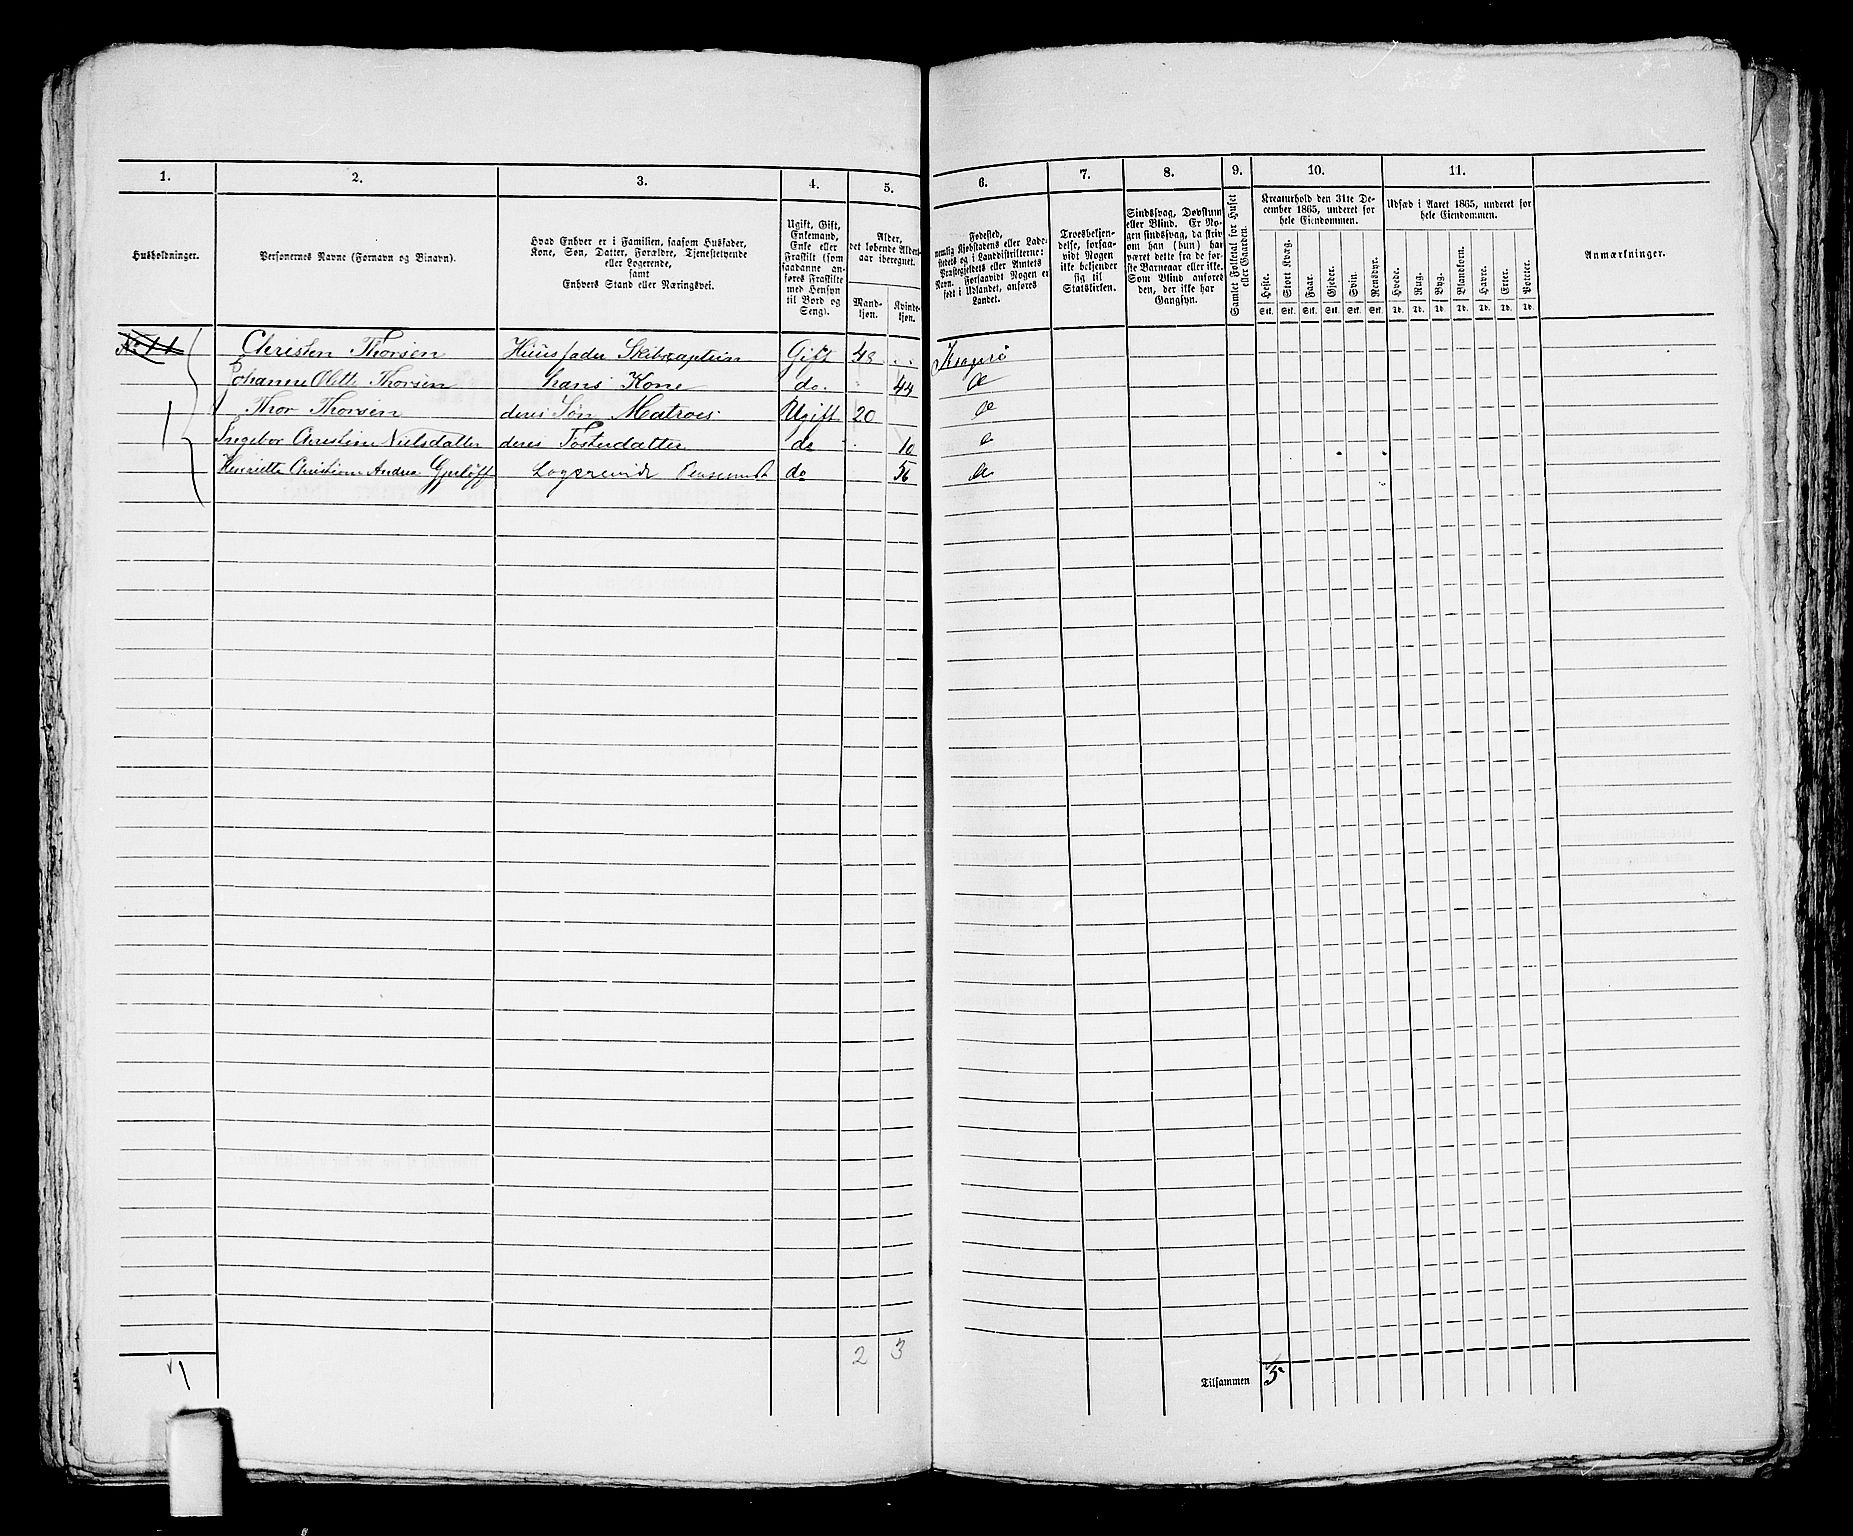 1. 2. 3. 4. 5. 6. 7. 8. 9. 10. 11.
Husholdninger.
Personernes Navne (Fornavn og Binavn).
Hvad Enhver er i Familien, saasom Husfader,
Kone, Søn, Datter, Forældre, Tjenestetyende
eller Logerende,
samt
Enhvers Stand eller Næringsvei.
Ugift, Gift,
Enkemand,
Enke eller
Fraskilt (som
saadanne an-
føres Fraskilte
med Hensyn
til Bord og
Seng).
Alder,
det løbende Alders-
aar iberegnet.
Mand-
kjøn.
Kvinde-
kjøn.
Fødested,
nemlig Kjøbstadens eller Lade-
stedets og i Landdistrikterne:
Præstegjeldets eller Amtets
Navn. Forsaavidt Nogen er
født i Udlandet, anføres
Landet.
Troesbekjen-
delse, forsaa-
vidt Nogen
ikke bekjender
sig til
Statskirken.
Sindssvag, Døvstum
eller Blind. Er No-
gen sindssvag, da skriv
om han (hun) har
været dette fra de før-
ste Barneaar eller ikke.
Som Blind anføres
den, der ikke har
Gangsyn.
Samlet Folketal for Huset
eller Gaarden.
Kreaturhold den 31te De-
cember 1865, underet for
hele Eiendommen.
Heste. Stort Kvæg. Faar. Gjeder. Svin. Rensdyr.
Stk. Stk. Stk. Stk. Stk. Stk.
Udsæd i Aaret 1865, underet for
hele Eiendommen.
Hvede. Rug. Byg. Blandkorn. Havre. Erter. Poteter.
Td. Td. Td. Td. Td. Td. Td.
Anmærkninger.
No 11 Christen Thorsen Huusfader Skibscaptein Gift 48 Kragerø
Johanne Olette Thorsen hans Kone do. 44 do
1 Thor Thorsen deres Søn Matros Ugift 20 do
Ingebor Christine Nielsdatter deres Fosterdatter do 10 do
Henriette Christiane Andrea Gjerløff Logerende do 56 do
1 2 3
Tilsammen 5